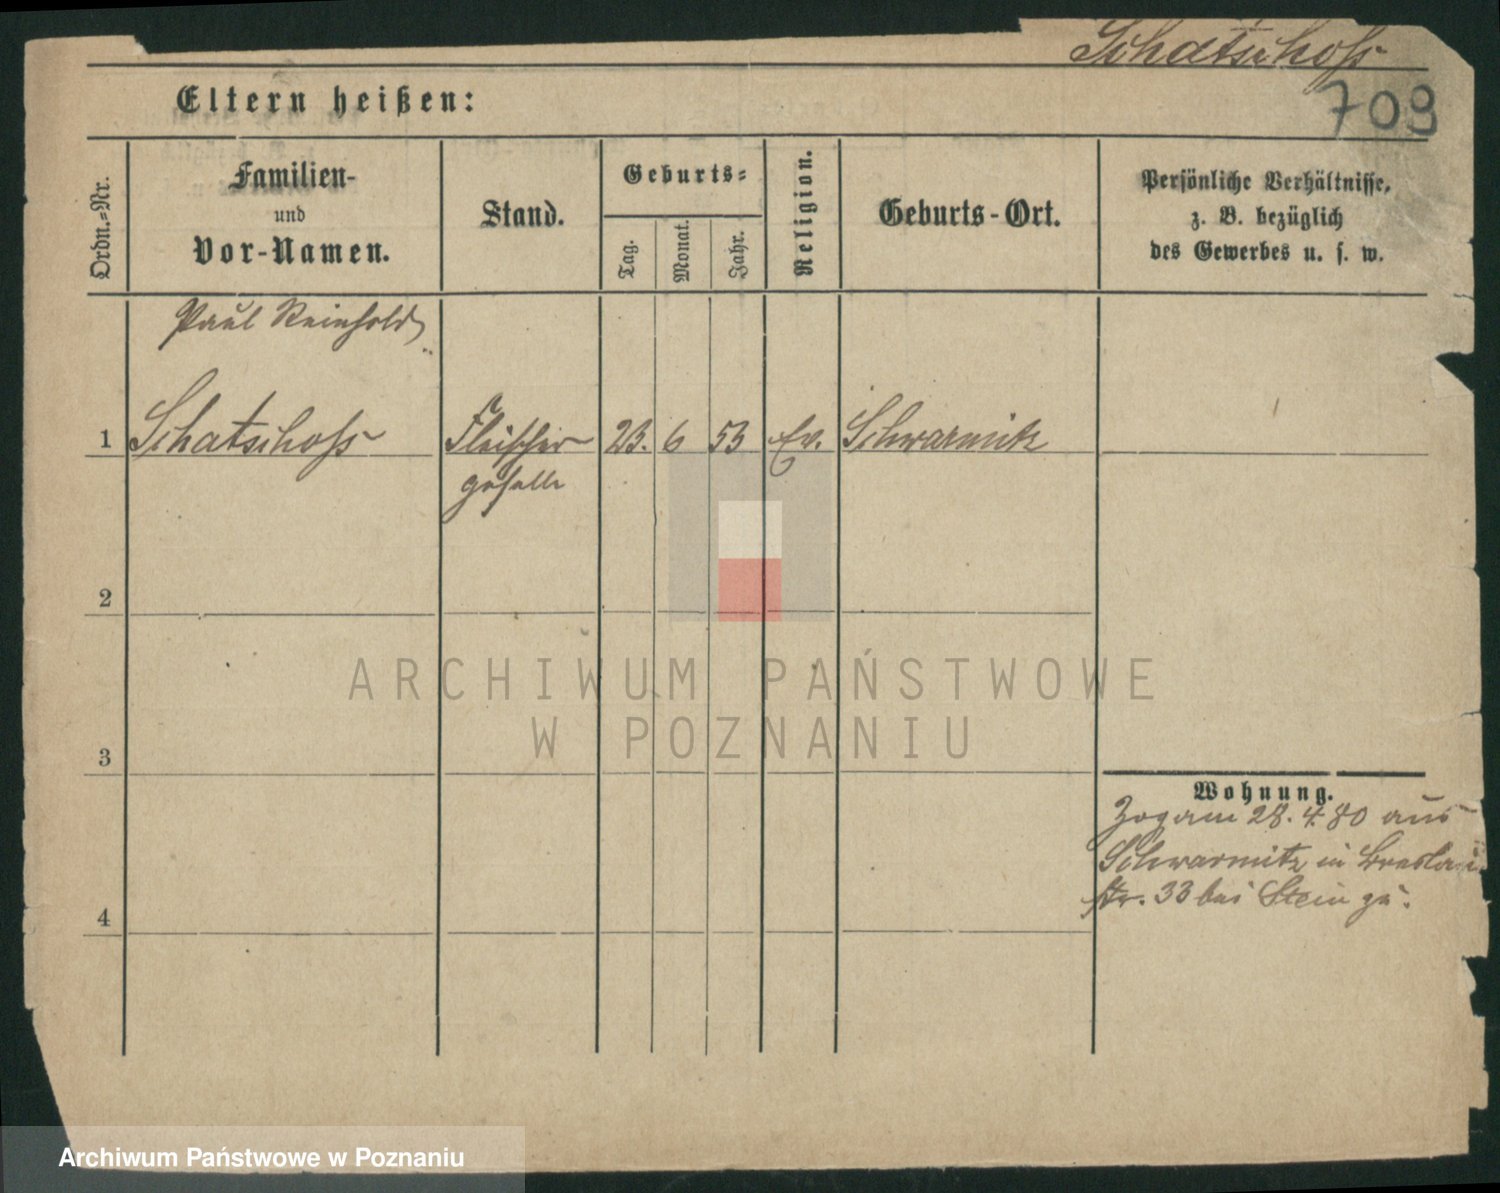 Schatschoß
709
Eltern heißen:
Ordn.=Nr.
Familien-
und
Vor-Namen.
Stand.
Geburts=
Tag.
Monat.
Jahr.
Religion.
Geburts-Ort.
Persönliche Verhältnisse,
z. B. bezüglich
des Gewerbes u. s. w.
Paul Reinhold
1 Schatschoß Fleischer 23. 6 53 Ev. Schwarmitz
geselle
2
3
4
Wohnung.
Zog am 28.4.80 aus
Schwarmitz in Breslauer
str. 33 bei Stein zu.
ARCHIWUM PAŃSTWOWE
W POZNANIU
Archiwum Państwowe w Poznaniu